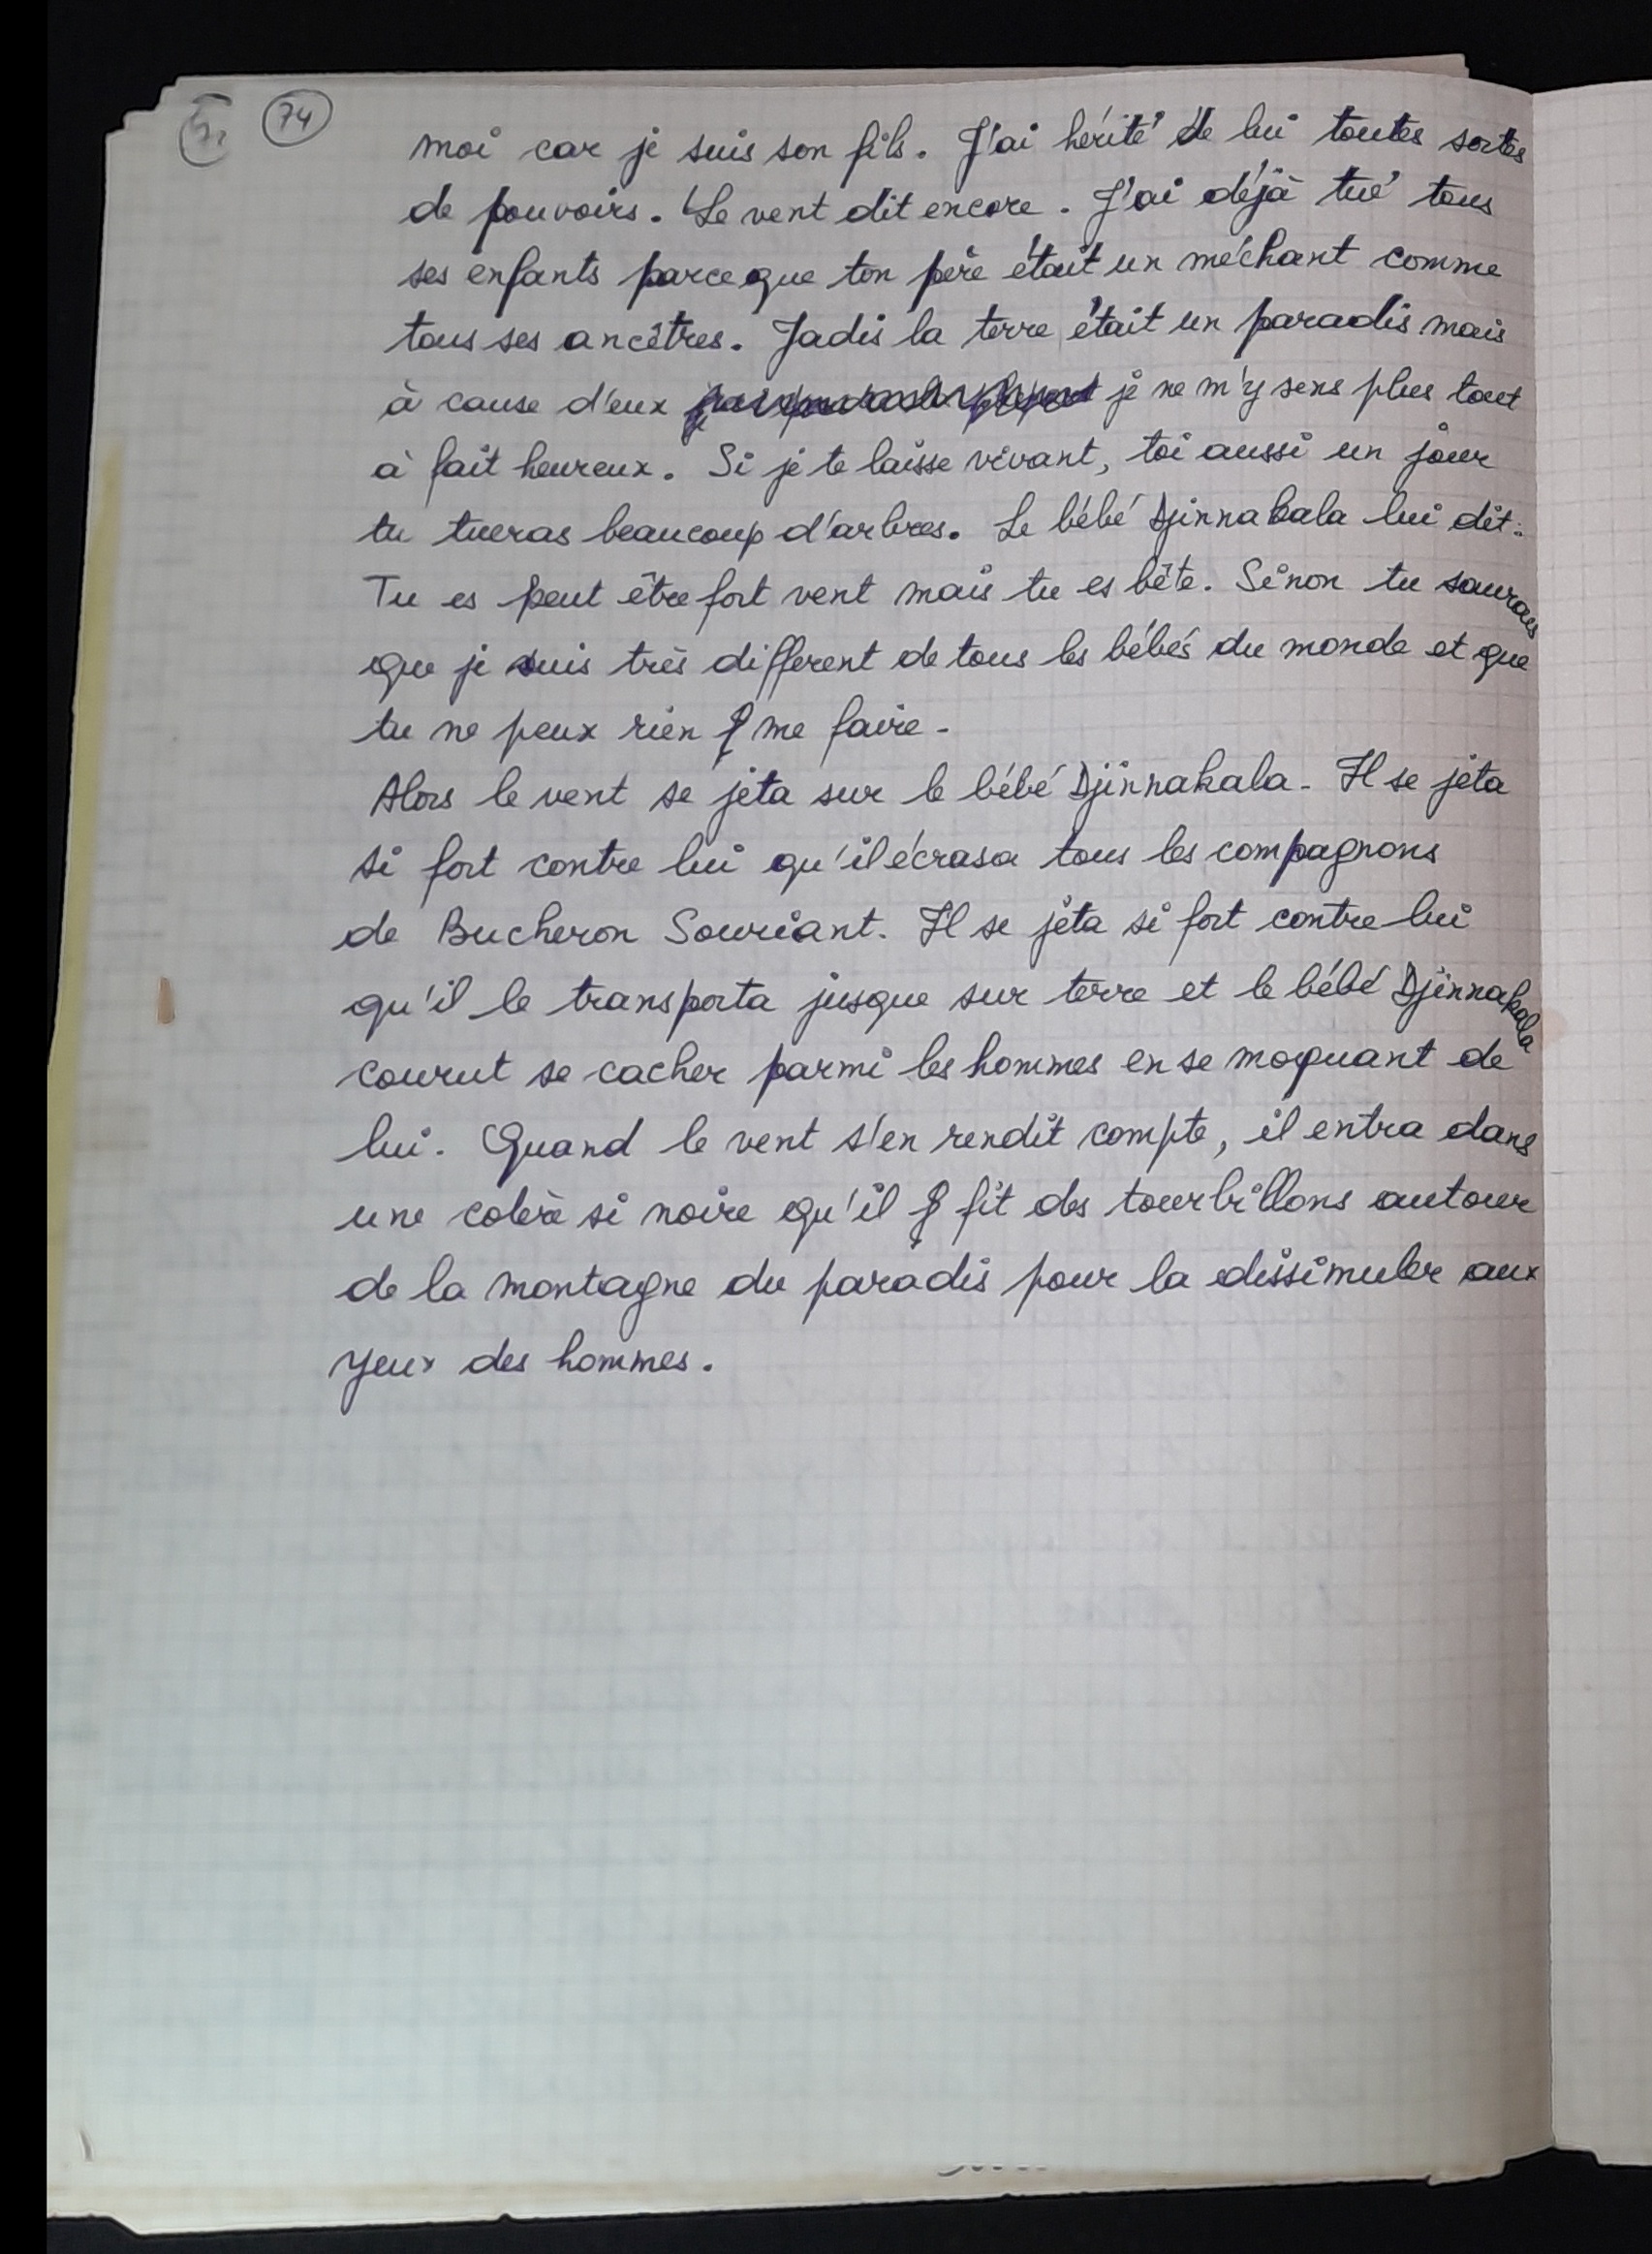 74
moi car je suis son fils. J'ai hérité de lui toutes sortes
de pouvoirs. Le vent dit encore. J'ai déjà tué tous
ses enfants parce que ton père était un méchant comme
tous ses ancêtres. Jadis la terre était un paradis mais
à cause d'eux je ne m'y sens plus tout
à fait heureux. Si je te laisse vivant, toi aussi un jour
tu tueras beaucoup d'arbres. Le bébé Djinnakala lui dit :
Tu es peut être fort vent mais tu es bête. Sinon tu saurais
que je suis très different de tous les bébés du monde et que
tu ne peux rien me faire.
Alors le vent se jeta sur le bébé Djinnakala. Il se jeta
si fort contre lui qu'il écrasa tous les compagnons
de Bucheron Souriant. Il se jeta si fort contre lui
qu'il le transporta jusque sur terre et le bébé Djinnakala
courut se cacher parmi les hommes en se moquant de
lui. Quand le vent s'en rendit compte, il entra dans
une colère si noire qu'il fit des tourbillons autour
de la montagne du paradis pour la dissimuler aux
yeux des hommes.